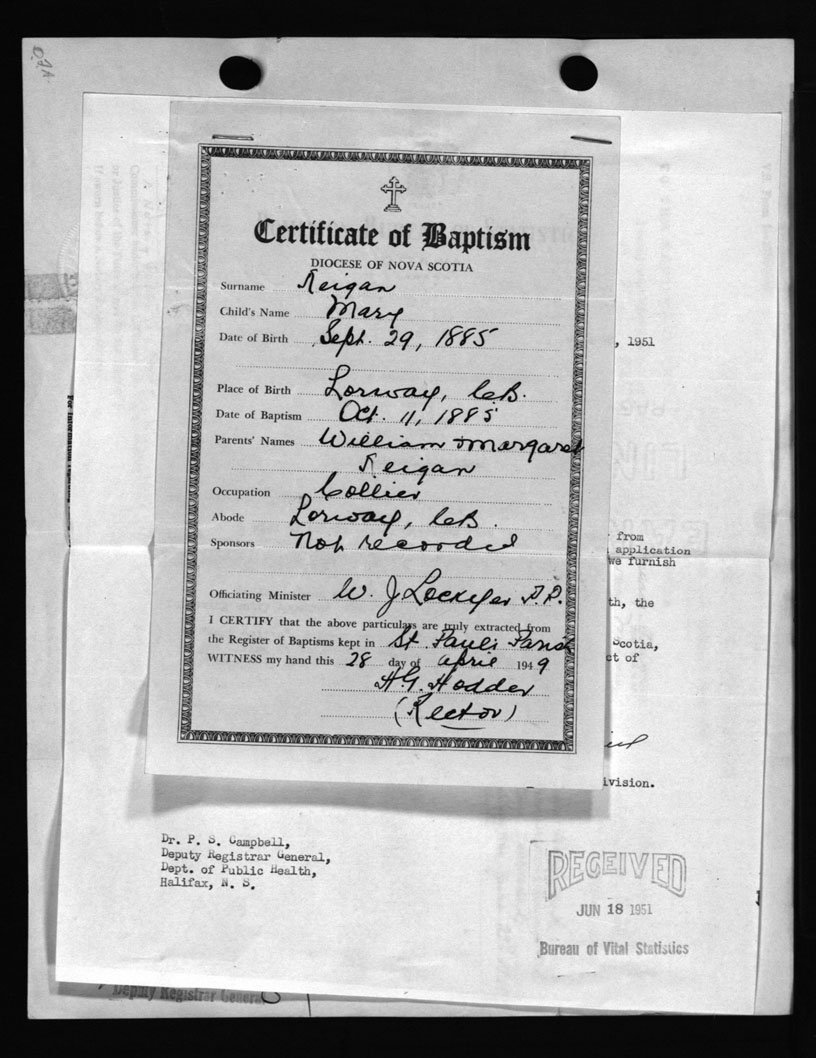 Certificate of Baptism
DIOCESE OF NOVA SCOTIA
Surname Reigan
Child's Name Mary
Date of Birth Sept. 29, 1885
Place of Birth Lorway, C.B.
Date of Baptism Oct. 11, 1885
Parents' Names William & Margaret
Reigan
Occupation Collier
Abode Lorway, C.B.
Sponsors Not recorded
Officiating Minister W. J Lockyer P.P.
I CERTIFY that the above particulars are truly extracted from
the Register of Baptisms kept in St. Paul's Parish
WITNESS my hand this 28 day of April 1949
H.G. Hodder
(Rector)
, 1951
from
application
we furnish
th, the
Scotia,
ct of
ivision.
Dr. P. S. Campbell,
Deputy Registrar General,
Dept. of Public Health,
Halifax, N. S.
RECEIVED
JUN 18 1951
Bureau of Vital Statistics
Deputy Registrar General